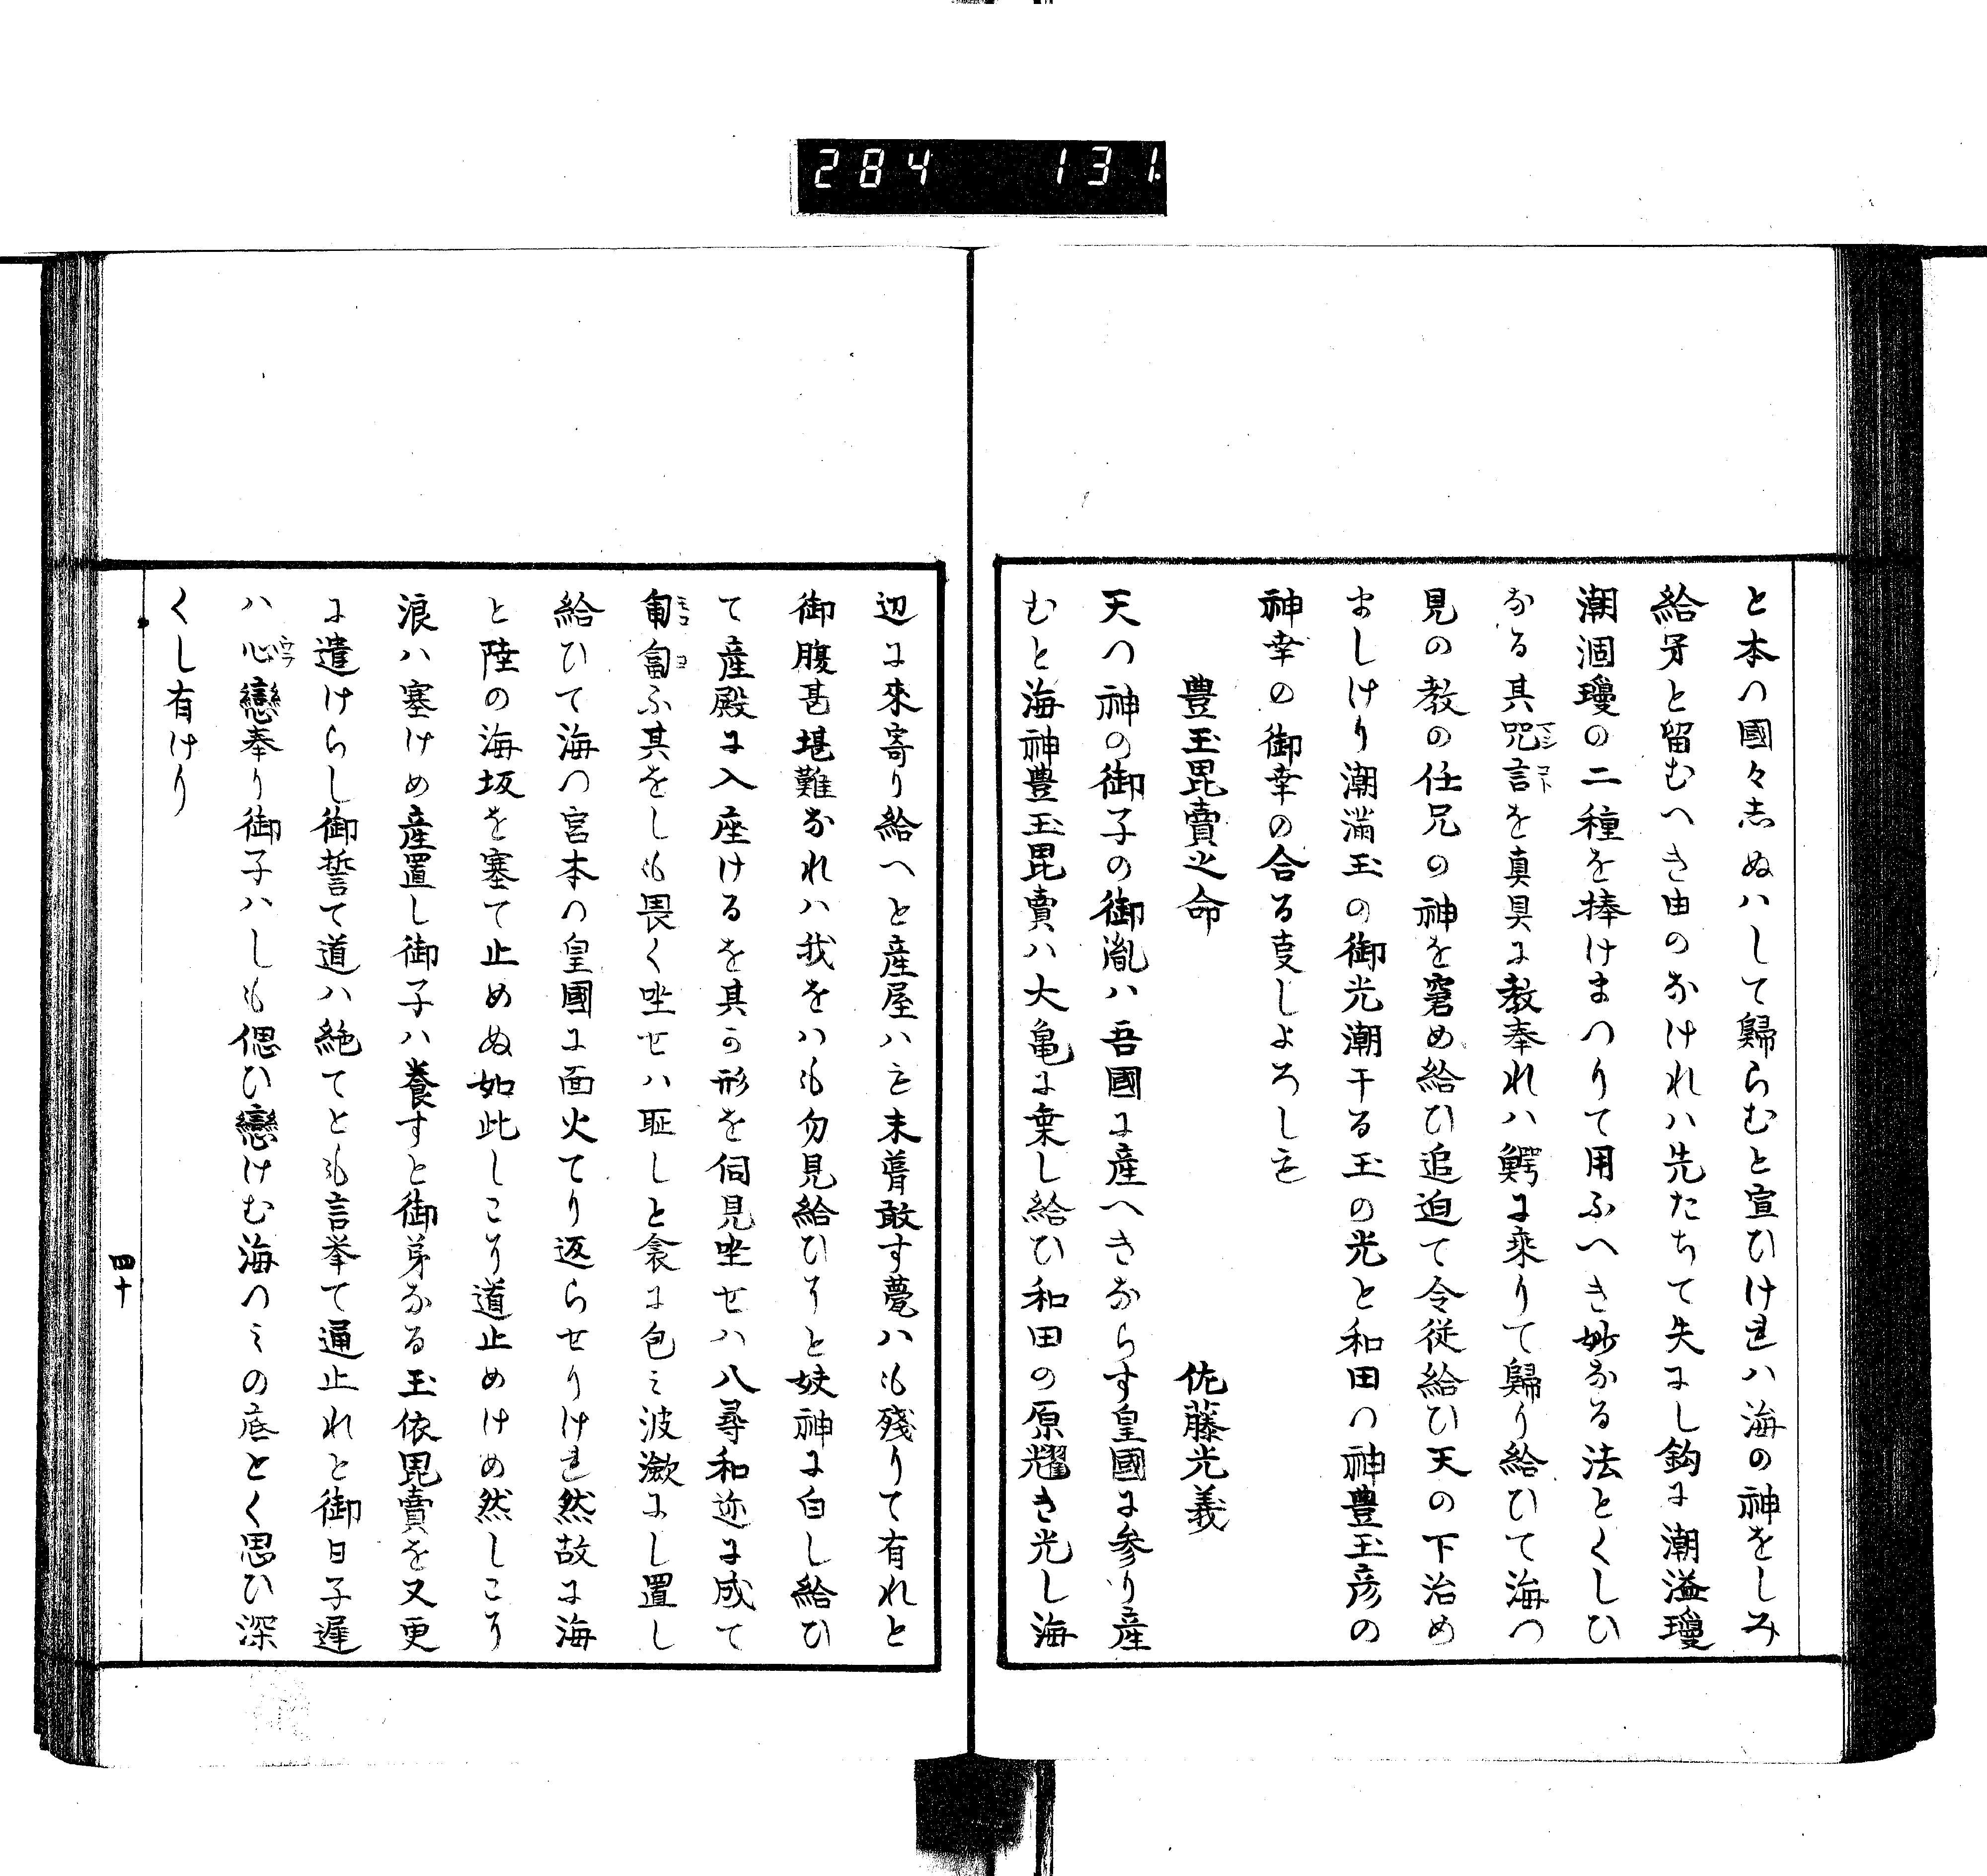 284 131
と本つ國々志ぬハして歸らむと宣ひけれハ海の神をしみ
給ひと留むへき由のなけれハ先たちて失にし鈎に潮溢瓊
潮涸瓊の二種を捧けまつりて用ふへき妙なる法とくしひ
なる其咒言を真具に教奉れハ鰐に乗りて歸り給ひて海つ
見の教の任兄の神を窘め給ひ追迫て令従給ひ天の下治め
ましけり潮満玉の御光潮干る玉の光と和田つ神豊玉彦の
神幸の御幸の合る叓しよろしも
豊玉毘賣之命
佐藤光義
天つ神の御子の御胤ハ吾國に産へきならす皇國に参り産
むと海神豊玉毘賣ハ大亀に乗し給ひ和田の原耀き光し海
辺に來寄り給へと産屋ハも未葺敢す甍ハも殘りて有れと
御腹甚堪難なれハ我をハも勿見給ひそと妋神に白し給ひ
て産殿に入座けるを其か形を伺見坐せハ八尋和迩に成て
匍匐ふ其をしも畏く坐せハ耻しと衾に包み波瀲にし置し
給ひて海つ宮本つ皇國に面火てり返らせりけれ然故に海
と陸の海坂を塞て止めぬ如此しこそ道止めけめ然しこそ
浪ハ塞けめ産置し御子ハ養すと御弟なる玉依毘賣を又更
に遣けらし御誓て道ハ絶てとも言挙て通止れと御日子遅
ハ心戀奉り御子ハしも偲ひ戀けむ海つみの底とく思ひ深
くし有けり
四十